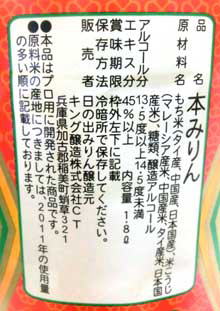 品名 本みりん
原材料名 もち米(タイ産、中国産、日本国産)、米こうじ
(マレーシア産米、中国産米、タイ産米、日本国
産米)、糖類、醸造アルコール
アルコール分 13.5度以上14.5度未満
エキス分 45%以上 内容量 1.8ℓ
賞味期限 枠外左下に記載
保存方法 冷暗所で保存してください。
販売者 日の出みりん醸造元
キング醸造株式会社CT
兵庫県加古郡稲美町蛸草321
●本品はプロ用に開発された商品です。
●原料米の産地につきましては、2011年の使用量
の多い順に記載しております。